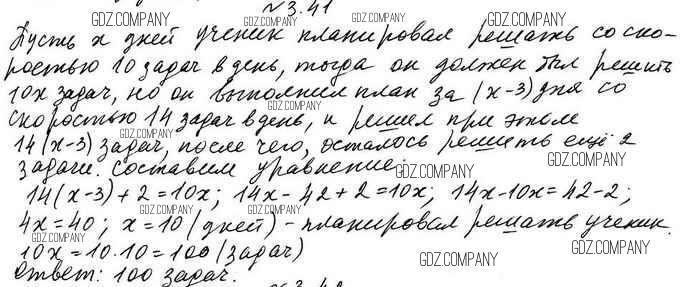 №3.41
Пусть x дней ученик планировал решать со ско-
ростью 10 задач в день, тогда он должен был решить
10x задач, но он выполнил план за (x-3) дня со
скоростью 14 задач в день, и решил при этом
14(x-3) задач, после чего, осталось решить ещё 2
задачи. Составим уравнение:
14(x-3)+2=10x; 14x-42+2=10x; 14x-10x=42-2;
4x=40; x=10 (дней) - планировал решать ученик.
10x=10·10=100 (задач)
Ответ: 100 задач.
№3.42
GDZ.COMPANY
GDZ.COMPANY
GDZ.COMPANY
GDZ.COMPANY
GDZ.COMPANY
GDZ.COMPANY
GDZ.COMPANY
GDZ.COMPANY
GDZ.COMPANY
GDZ.COMPANY
GDZ.COMPANY
GDZ.COMPANY
GDZ.COMPANY